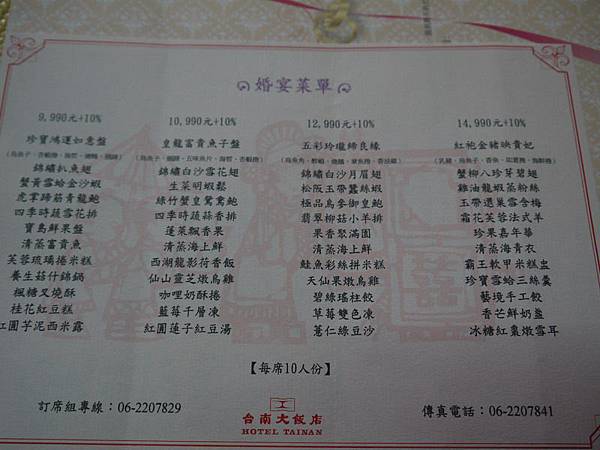 婚宴菜單
9,990元+10%
珍寶鴻運如意盤
錦繡扒魚翅
蟹黃雪蛤金沙蝦
虎掌蹄筋青龍鮑
四季時蔬雪花排
寶島鮮果盤
清蒸富貴魚
芙蓉琉璃捲米糕
養生菇什錦鍋
楓糖叉燒酥
桂花紅豆糕
紅圓芋泥西米露
10,990元+10%
皇龍富貴魚子盤
錦繡白沙雪花翅
生菜明蝦鬆
綠竹蟹皇鴛鴦鮑
四季時蔬蒜香排
蓬萊飄香果
清蒸海上鮮
西湖龍影荷香飯
仙山靈芝燉烏雞
咖哩奶酥捲
藍莓千層凍
紅圓蓮子紅豆湯
12,990元+10%
五彩玲瓏締良緣
錦繡白沙月眉翅
松阪玉帶蠶絲蝦
極品烏參御皇鮑
翡翠柳菇小羊排
果香聚滿園
清蒸海上鮮
鮭魚彩絲拼米糕
天仙果燉烏雞
碧綠瑤柱餃
草莓雙色凍
薏仁綠豆沙
14,990元+10%
紅袍金豬映貴妃
蟹柳八珍芽碧翅
雞油龍蝦蒸粉絲
玉帶遇黑雪含梅
霜花芙蓉法式羊
珍果嘉年華
清蒸海青衣
霸王軟甲米糕盅
珍寶雪蛤三絲羹
藝境手工餃
香芒鮮奶盞
冰糖紅棗燉雪耳
【每席10人份】
訂席組專線：06-2207829
台南大飯店
HOTEL TAINAN
傳真電話：06-2207841